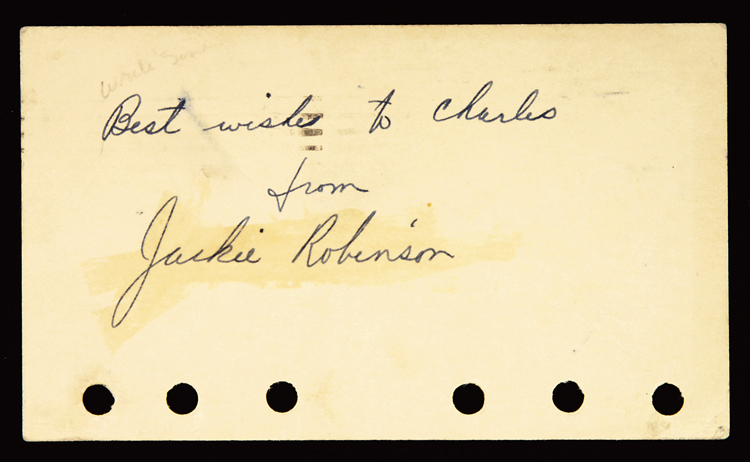 Best wishes to Charles
from
Jackie Robinson